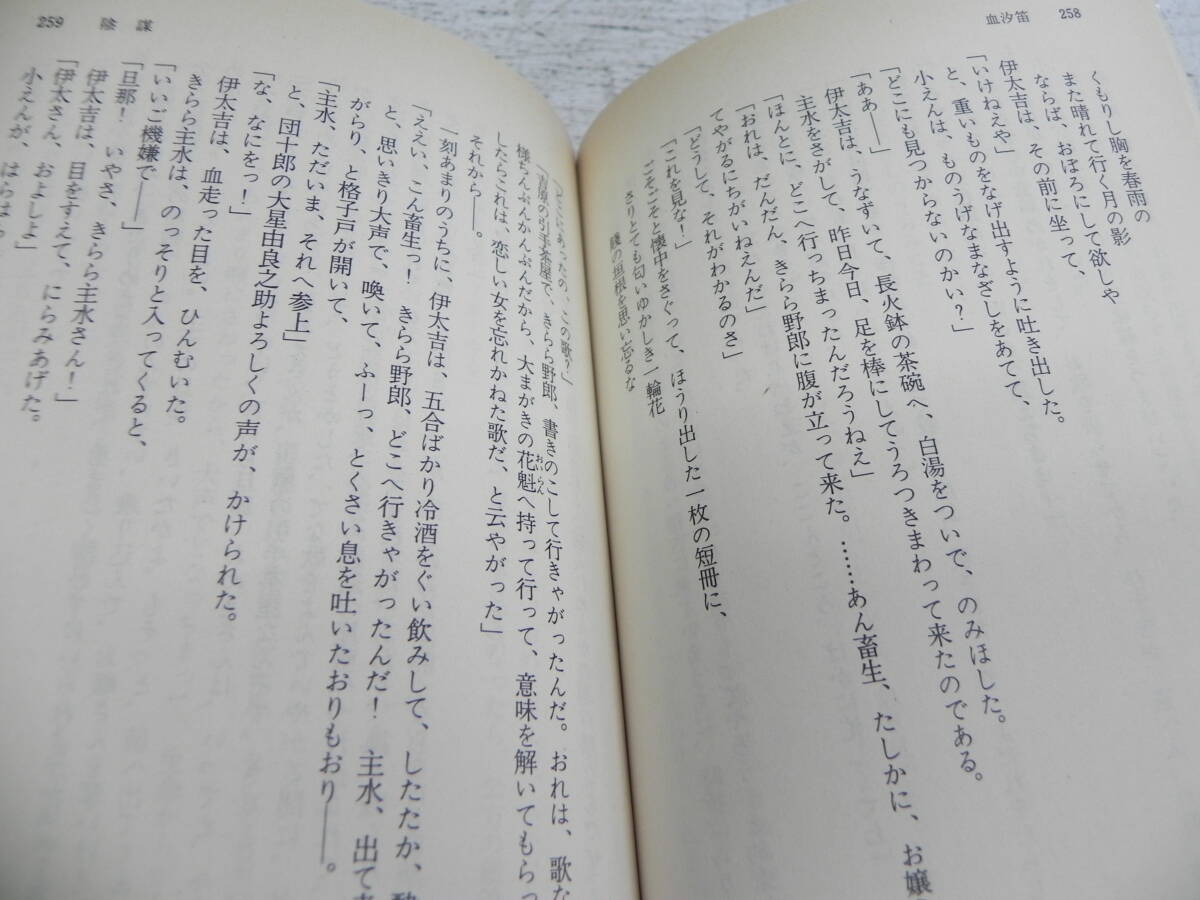 血汐笛 258
くもりし胸を春雨の
また晴れて行く月の影
ならば、おぼろにして欲しや
伊太吉は、その前に坐って、
「いけねえや」
と、重いものをなげ出すように吐き出した。
小えんは、ものうげなまなざしをあてて、
「どこにも見つからないのかい?」
「ああ――」
伊太吉は、うなずいて、長火鉢の茶碗へ、白湯をついで、のみほした。
主水をさがして、昨日今日、足を棒にしてうろつきまわって来たのである。
「ほんとに、どこへ行っちまったんだろうねえ」
「おれは、だんだん、きらら野郎に腹が立って来た。……あん畜生、たしかに、お嬢
てやがるにちがいねえんだ」
「どうして、それがわかるのさ」
「これを見な!」
ごそごそと懐中をさぐって、ほうり出した一枚の短冊に、
さりとても匂いゆかしき一輪花
賤の垣根を思い忘るな
259 陰謀
「どこにあったの、この歌?」
「吉原の引手茶屋で、きらら野郎、書きのこして行きゃがったんだ。おれは、歌な
様ちんぷんかんぷんだから、大まがきの花魁へ持って行って、意味を解いてもらっ
おいらん
したらこれは、恋しい女を忘れかねた歌だ、と云やがった」
それから――。
一刻あまりのうちに、伊太吉は、五合ばかり冷酒をぐい飲みして、したたか、酔
「ええい、こん畜生っ! きらら野郎、どこへ行きゃがったんだ! 主水、出て
と、思いきり大声で、喚いて、ふーっ、とくさい息を吐いたおりもおり――。
がらり、と格子戸が開いて、
「主水、ただいま、それへ参上」
と、団十郎の大星由良之助よろしくの声が、かけられた。
「な、なにをっ!」
伊太吉は、血走った目を、ひんむいた。
きらら主水は、のっそりと入ってくると、
「いいご機嫌で――」
「旦那! いやさ、きらら主水さん!」
伊太吉は、目をすえて、にらみあげた。
「伊太さん、およしよ」
小えんが、はらはら